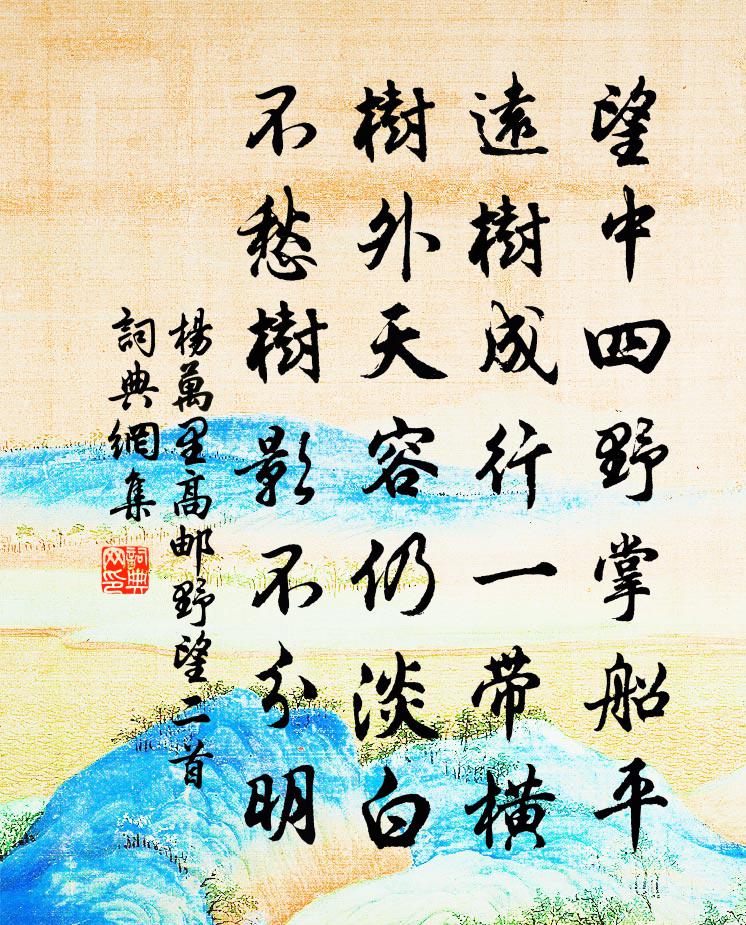 望中四野掌船平
遠樹成行一带橫
樹外天容仍淡白
不愁樹影不分明
楊萬里高邮野望二首
詞典網集
詞典
网印